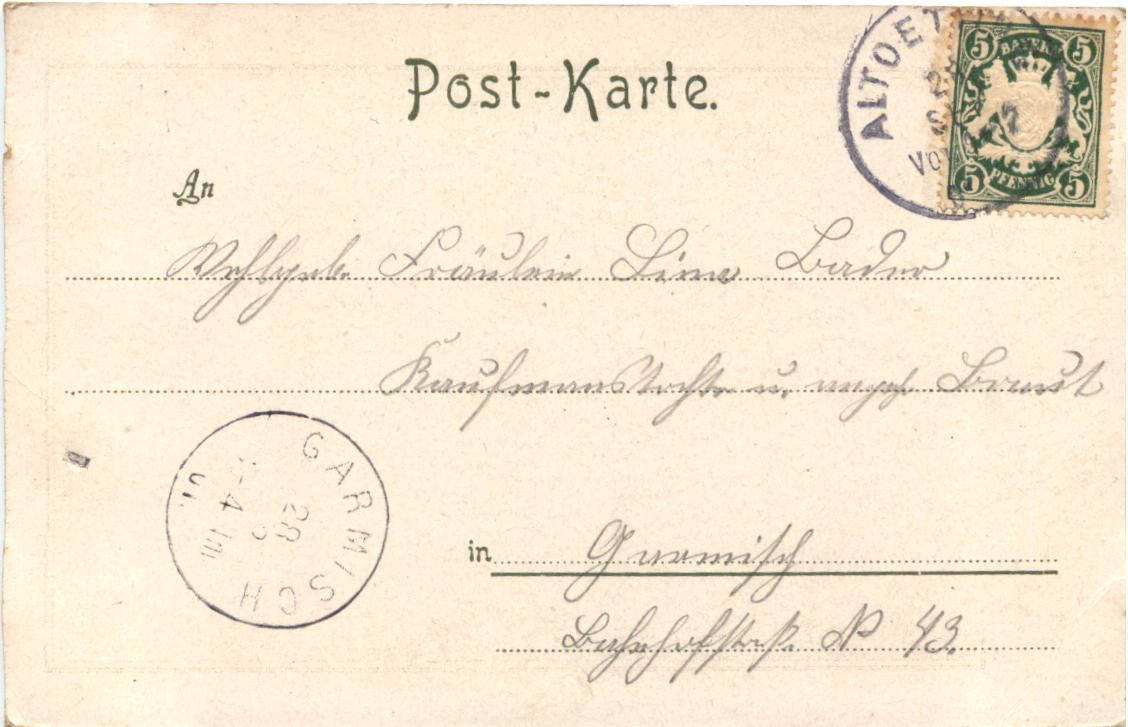 Post-Karte.
ALTOET
VOR
5 BAYERN 5
5 PFENNIG 5
An
Wohlgeb. Fräulein Lina Bader
Kaufmannstochter u. angeh. Braut
GARMISCH
28
in Garmisch
Bahnhofstraß. No 43.